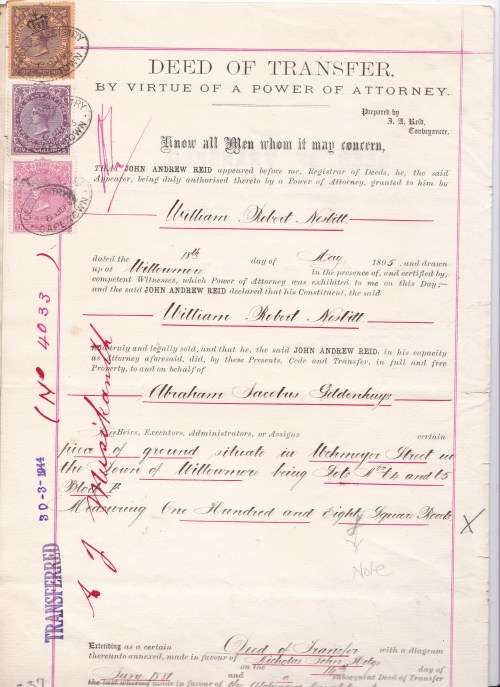 DEED OF TRANSFER,
BY VIRTUE OF A POWER OF ATTORNEY.
Prepared by
J. A. Reid,
Conveyancer.
Know all Men whom it may concern,
JOHN ANDREW REID appeared before me, Registrar of Deeds, he, the said
Appearer, being duly authorised thereto by a Power of Attorney, granted to him by
William Robert Nesbitt
dated the 18th day of May 1895, and drawn
up at Willowmore in the presence of, and certified by,
competent Witnesses, which Power of Attorney was exhibited to me on this Day;—
and the said JOHN ANDREW REID declared that his Constituent, the said
William Robert Nesbitt
truly and legally sold, and that he, the said JOHN ANDREW REID, in his capacity
as Attorney aforesaid, did, by these Presents, Cede and Transfer, in full and free
Property, to and on behalf of
Abraham Jacobus Gildenhuys
Heirs, Executors, Administrators, or Assigns certain
piece of ground situate in Wehmeyer Street in
the Town of Willowmore being Lots Nos 64 and 65
Block
Measuring One Hundred and Eighty Square Roods
X
Note
Extending as a certain Deed of Transfer with a diagram
thereunto annexed, made in favour of Nicholas John
on the
and subsequent Deed of Transfer
made in favour of the
(No 4033)
30-3-1944
TRANSFERRED
37